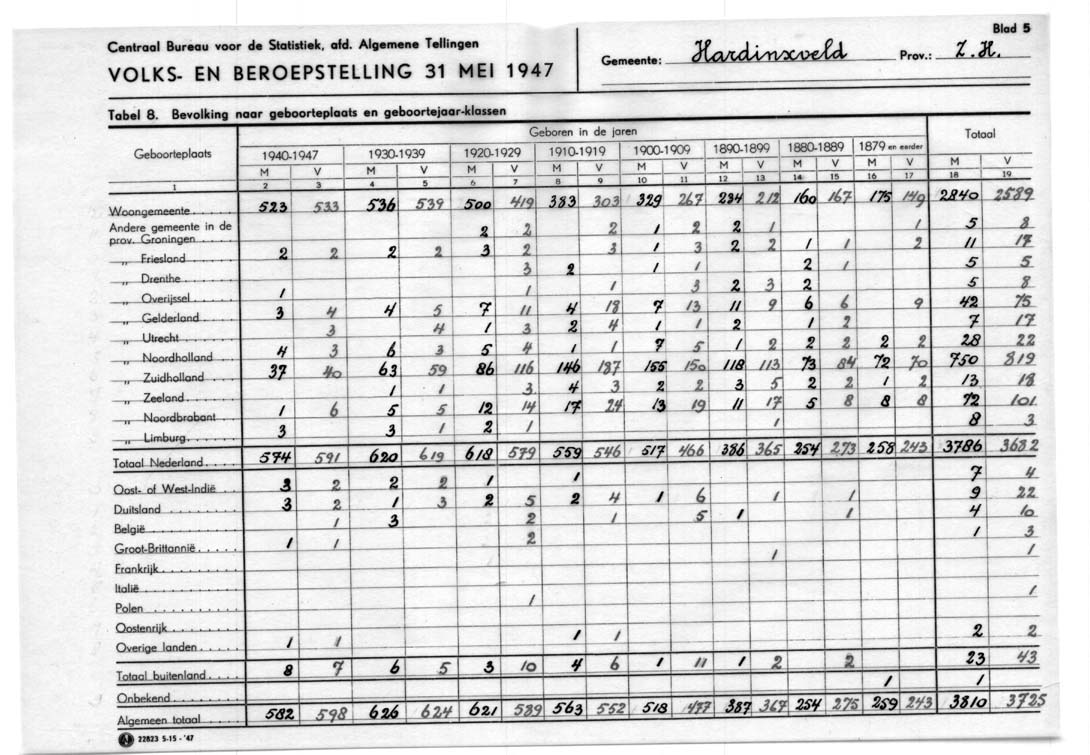 Centraal Bureau voor de Statistiek, afd. Algemene Tellingen
VOLKS- EN BEROEPSTELLING 31 MEI 1947
Gemeente: Hardinxveld Prov.: Z.H.
Blad 5
Tabel 8. Bevolking naar geboorteplaats en geboortejaar-klassen
Geboorteplaats Geboren in de jaren Totaal
1940-1947 1930-1939 1920-1929 1910-1919 1900-1909 1890-1899 1880-1889 1879 en eerder
M V M V M V M V M V M V M V M V M V
1 2 3 4 5 6 7 8 9 10 11 12 13 14 15 16 17 18 19
Woongemeente..... 523 533 536 539 500 419 383 303 329 267 234 212 160 167 175 149 2840 2589
Andere gemeente in de
prov. Groningen....... 2 2 2 1 2 2 1 1 5 8
„ Friesland....... 2 2 2 2 3 2 3 1 3 2 2 1 1 2 11 17
„ Drenthe....... 3 2 1 1 2 1 5 5
„ Overijssel....... 1 1 1 3 2 3 2 5 8
„ Gelderland..... 3 4 4 5 7 11 4 18 7 13 11 9 6 6 9 42 75
„ Utrecht....... 3 4 1 3 2 4 1 1 2 1 2 7 17
„ Noordholland.... 4 3 6 3 5 4 1 1 7 5 1 2 2 2 2 2 28 22
„ Zuidholland..... 37 40 63 59 86 116 146 187 155 150 118 113 73 84 72 70 750 819
„ Zeeland....... 1 1 3 4 3 2 2 3 5 2 2 1 2 13 18
„ Noordbrabant.... 1 6 5 5 12 14 17 24 13 19 11 17 5 8 8 8 72 101
„ Limburg....... 3 3 1 2 1 1 8 3
Totaal Nederland..... 574 591 620 619 618 579 559 546 517 466 386 365 254 273 258 243 3786 3682
Oost- of West-Indië ... 3 2 2 2 1 1 7 4
Duitsland ......... 3 2 1 3 2 5 2 4 1 6 1 1 9 22
België........... 1 3 2 1 5 1 1 4 10
Groot-Brittannië...... 1 1 2 1 3
Frankrijk.......... 1 1
Italië............
Polen ........... 1 1
Oostenrijk.........
Overige landen...... 1 1 1 1 2 2
Totaal buitenland..... 8 7 6 5 3 10 4 6 1 11 1 2 2 23 43
Onbekend......... 1 1
Algemeen totaal ..... 582 598 626 624 621 589 563 552 518 477 387 367 254 275 259 243 3810 3725
22823 5-15-'47